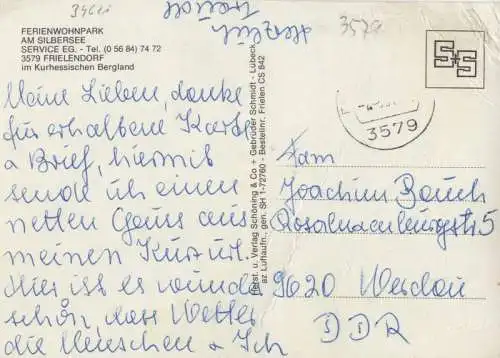 3579
FERIENWOHNPARK
AM SILBERSEE
SERVICE EG. - Tel. (0 56 84) 74 72
3579 FRIELENDORF
im Kurhessischen Bergland
Meine Lieben, danke
für erhaltene Karte
u Brief, hiermit
sende ich einen
netten Gruss aus
meinen Kururl.
Hier ist es wunder
schön, das Wetter
die Menschen & Ich
Herzlich
Herst. u. Verlag Schöning & Co + Gebrüder Schmidt - Lübeck
Luftaufn. gen. SH 1-72760 - Bestellnr. Frielen CS 842
3579
Fam
Joachim Bauch
5
9620 Werdau
DDR